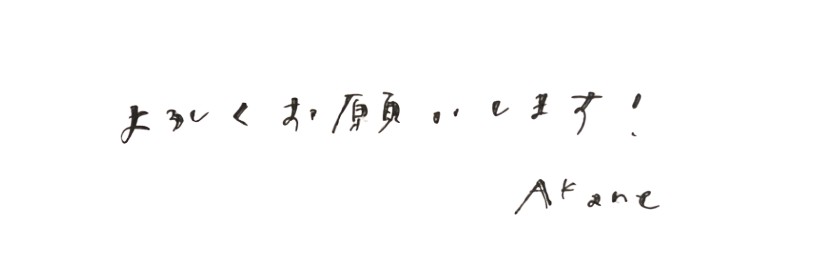 よろしくお願いします!
Akane